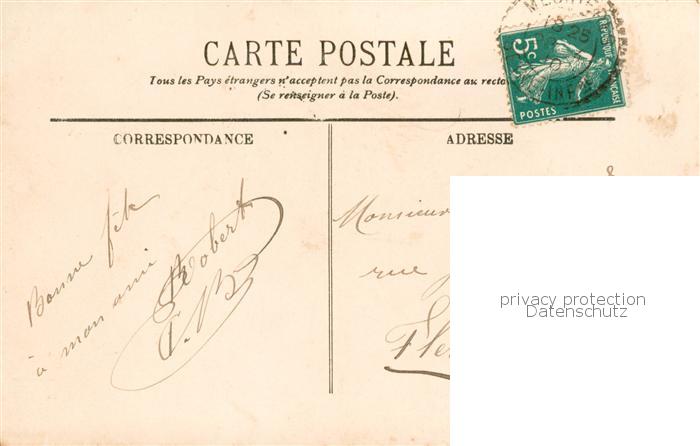 CARTE POSTALE
Tous les Pays étrangers n'acceptent pas la Correspondance au recto
(Se renseigner à la Poste).
CORRESPONDANCE
ADRESSE
5c
POSTES
Bonne fête
à mon ami
Robert
Monsieur
rue
Fle
privacy protection
Datenschutz